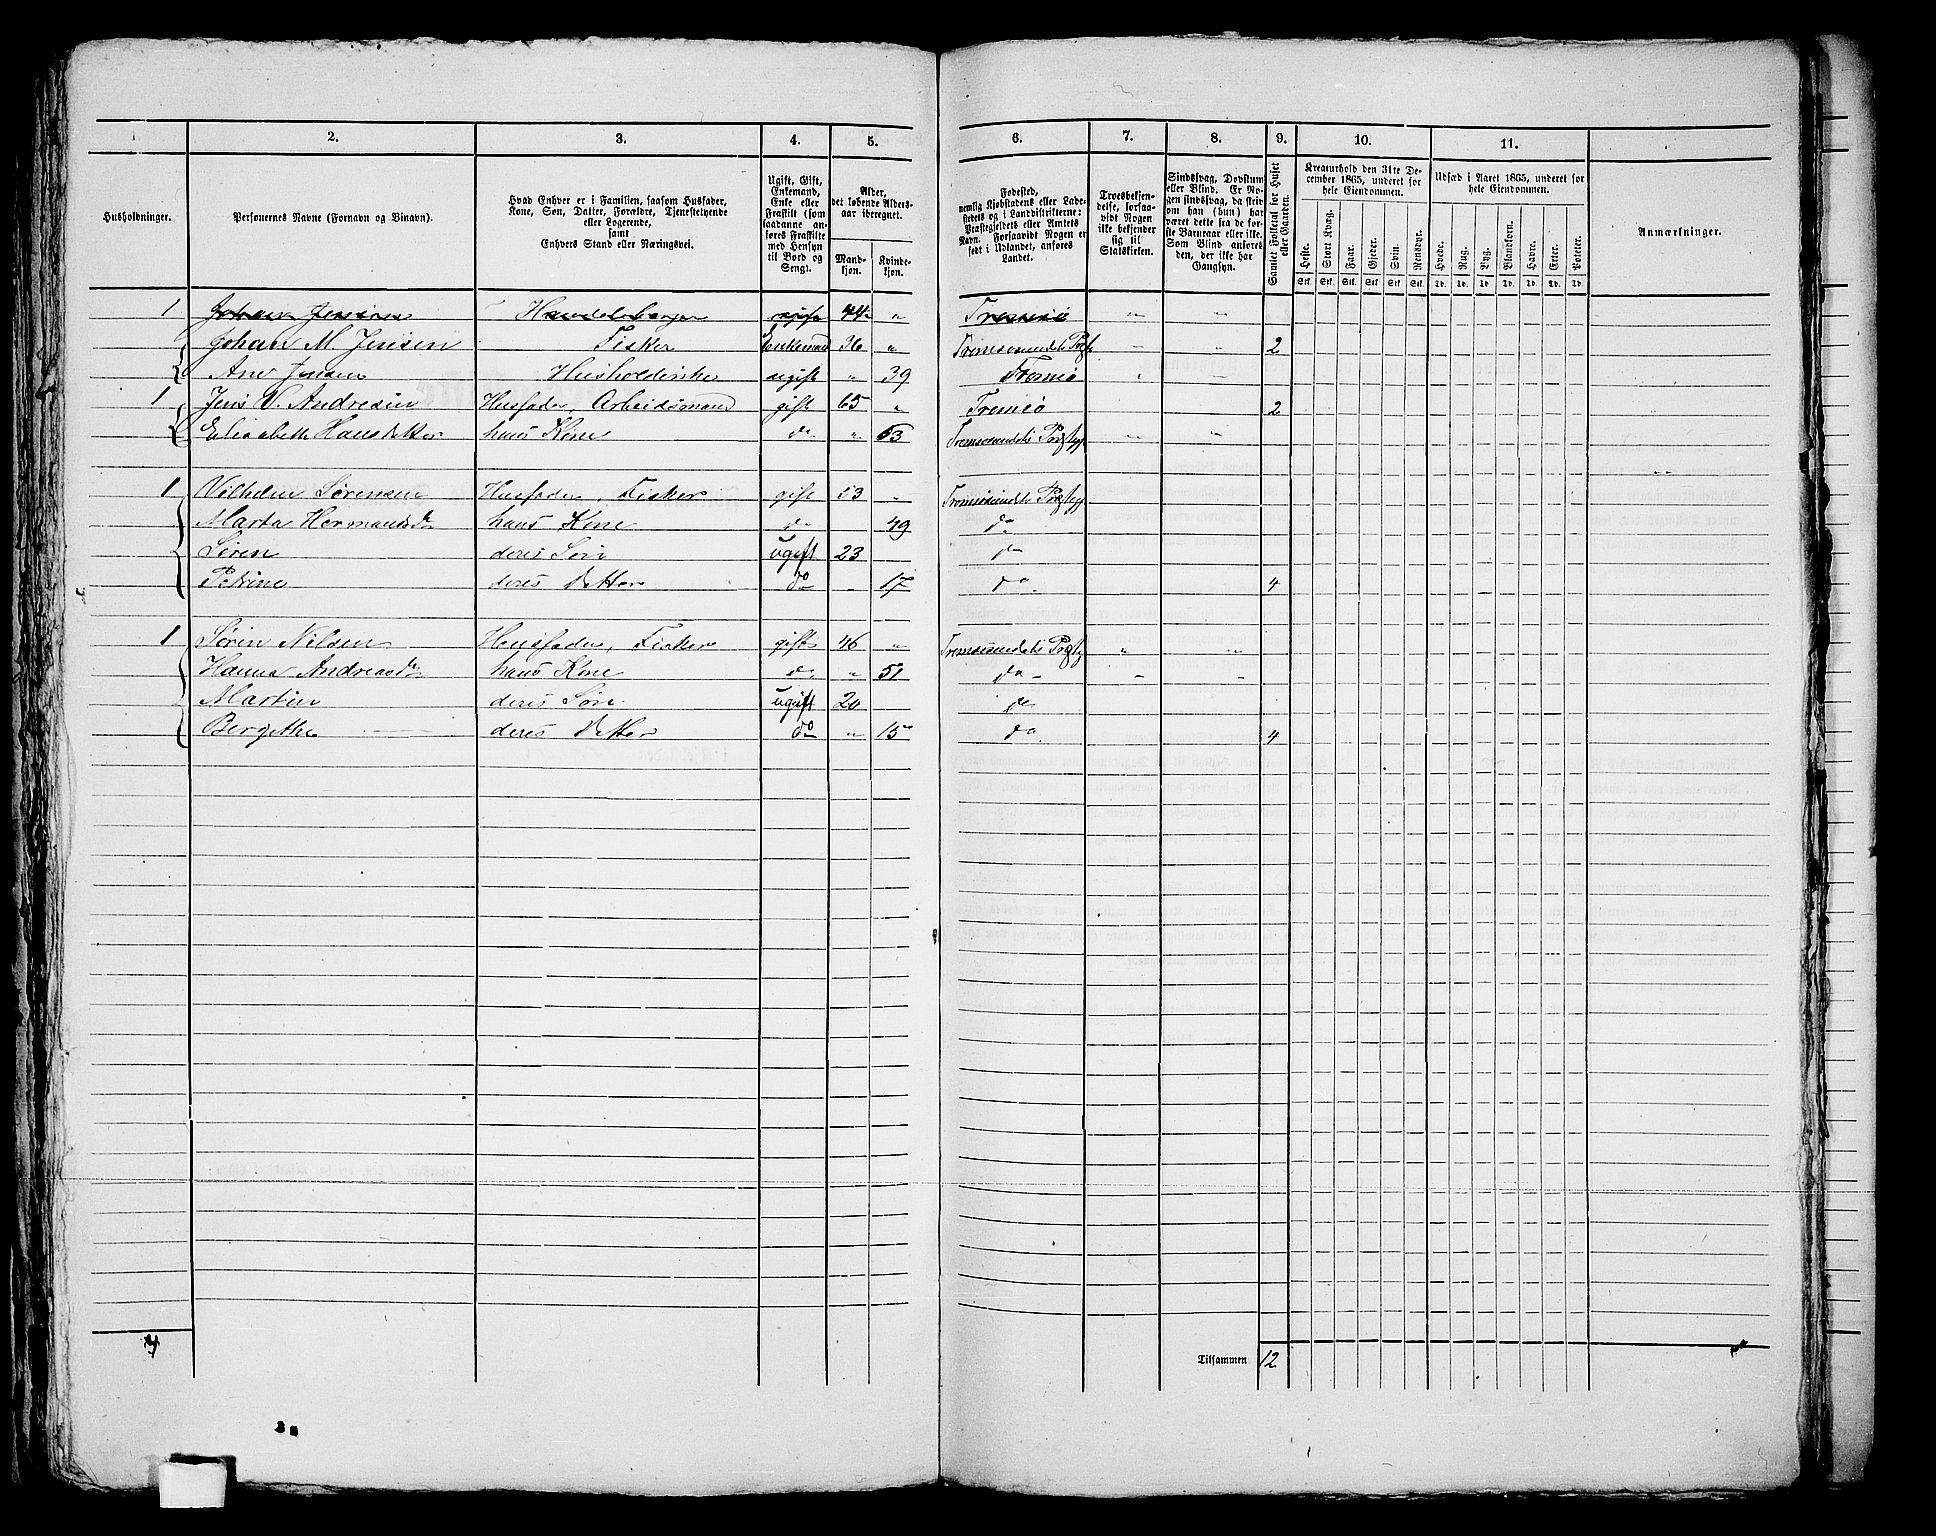 1. 2. 3. 4. 5. 6. 7. 8. 9. 10. 11.
Husholdninger.
Personernes Navne (Fornavn og Binavn).
Hvad Enhver er i Familien, saasom Husfader,
Kone, Søn, Datter, Forældre, Tjenestetyende
eller Logerende,
samt
Enhvers Stand eller Næringsvei.
Ugift, Gift,
Enkemand,
Enke eller
Fraskilt (som
saadanne an-
føres Fraskilte
med Hensyn
til Bord og
Seng).
Alder,
det løbende Alders-
aar iberegnet.
Mand-
kjøn.
Kvinde-
kjøn.
Fødested,
nemlig Kjøbstadens eller Lade-
stedets og i Landdistrikterne:
Præstegjeldets eller Amtets
Navn. Forsaavidt Nogen er
født i Udlandet, anføres
Landet.
Troesbekjen-
delse, forsaa-
vidt Nogen
ikke bekjender
sig til
Statskirken.
Sindssvag, Døvstum
eller Blind. Er No-
gen sindssvag, da skriv
om han (hun) har
været dette fra de før-
ste Barneaar eller ikke.
Som Blind anføres
den, der ikke har
Gangsyn.
Samlet Folketal for Huset
eller Gaarden.
Kreaturhold den 31te De-
cember 1865, underet for
hele Eiendommen.
Heste. Stort Kvæg. Faar. Gjeder. Svin. Rensdyr.
Stk. Stk. Stk. Stk. Stk. Stk.
Udsæd i Aaret 1865, underet for
hele Eiendommen.
Hvede. Rug. Byg. Blandkorn. Havre. Erter. Poteter.
Td. Td. Td. Td. Td. Td. Td.
Anmærkninger.
1 Johan Jensen Handelsborger ugift 44 " Tromsø " "
Johan M. Jensen Fisker Enkemand 36 " Tromøsundets Prgj - " 2
Ane Jensen Husholderske ugift " 39 Tromsø
1 Jens V. Andresen Husfader, Arbeidsmand gift 65 " Tromsø 2
Elisabeth Hansdatter hans Kone do " 53 Tromøsundets Præstegj " "
1 Vilhelm Sørensen Husfader, Fisker gift 53 " Tromøsundets Præstegj
Marta Hermansdr hans Kone do 49 do
Søren deres Søn ugift 23 do
Petrine deres Datter do - 17 do 4
1 Søren Nilsen Husfader, Fisker gift 46 " Tromøsundets Præstegj " "
Hanna Andreasdr hans Kone do " 51 do - - -
Martin deres Søn ugift 20 do
Bergithe deres Datter do " 15 do 4
4 Tilsammen 12